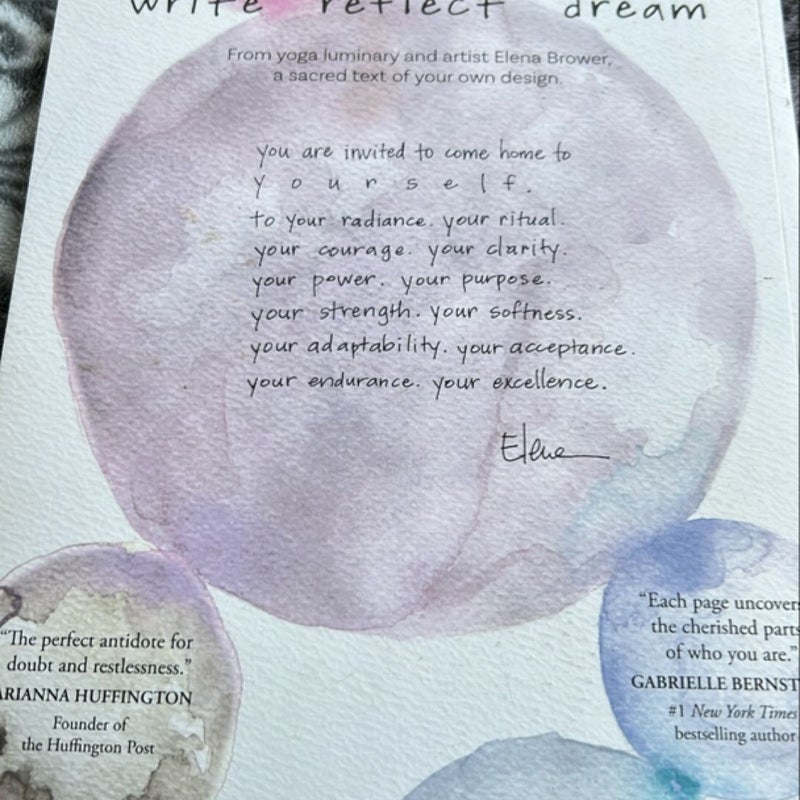 write reflect dream
From yoga luminary and artist Elena Brower,
a sacred text of your own design.
you are invited to come home to
y o u r s e l f.
to your radiance. your ritual.
your courage. your clarity.
your power. your purpose.
your strength. your softness.
your adaptability. your acceptance.
your endurance. your excellence.
Elena
"The perfect antidote for
doubt and restlessness."
ARIANNA HUFFINGTON
Founder of
the Huffington Post
"Each page uncovers
the cherished parts
of who you are."
GABRIELLE BERNST
#1 New York Times
bestselling author